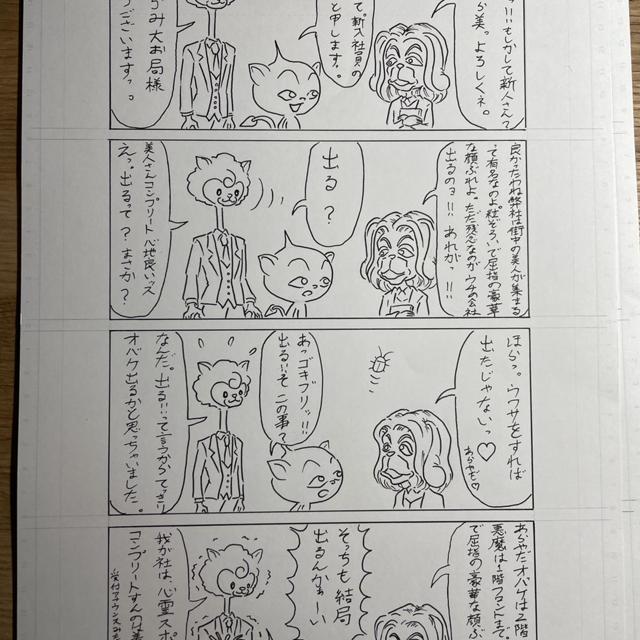 !!!もしかして新人さん?
ら美。よろしくネ。
て。新入社員の
と申します。
み大お局様
ございますっっ
良かったわね弊社は街中の美人が集まる
って有名なのよ。社ぞろいで屈指の豪華
な顔ぶれよ。ただ残念なのがウチの会社
出るのヨ!!あれがっ!!!
出る?
美人さんコンプリート心地良いッス
えっ。出るって?まさか?
ほらっ。ウワサをすれば
出たじゃないっ♡
あらやだ♡
あっゴキブリッ!!
出る!!ってこの事?
なんだ。出る!!って言うからてっきり
オバケ出るかと思っちゃいました。
あらやだオバケは2階
悪魔は1階フロントまで
で屈指の豪華な顔ぶ
そっちも結局
出るんかぁーい
我が社は、心霊スポ
コンプリートすんのは美